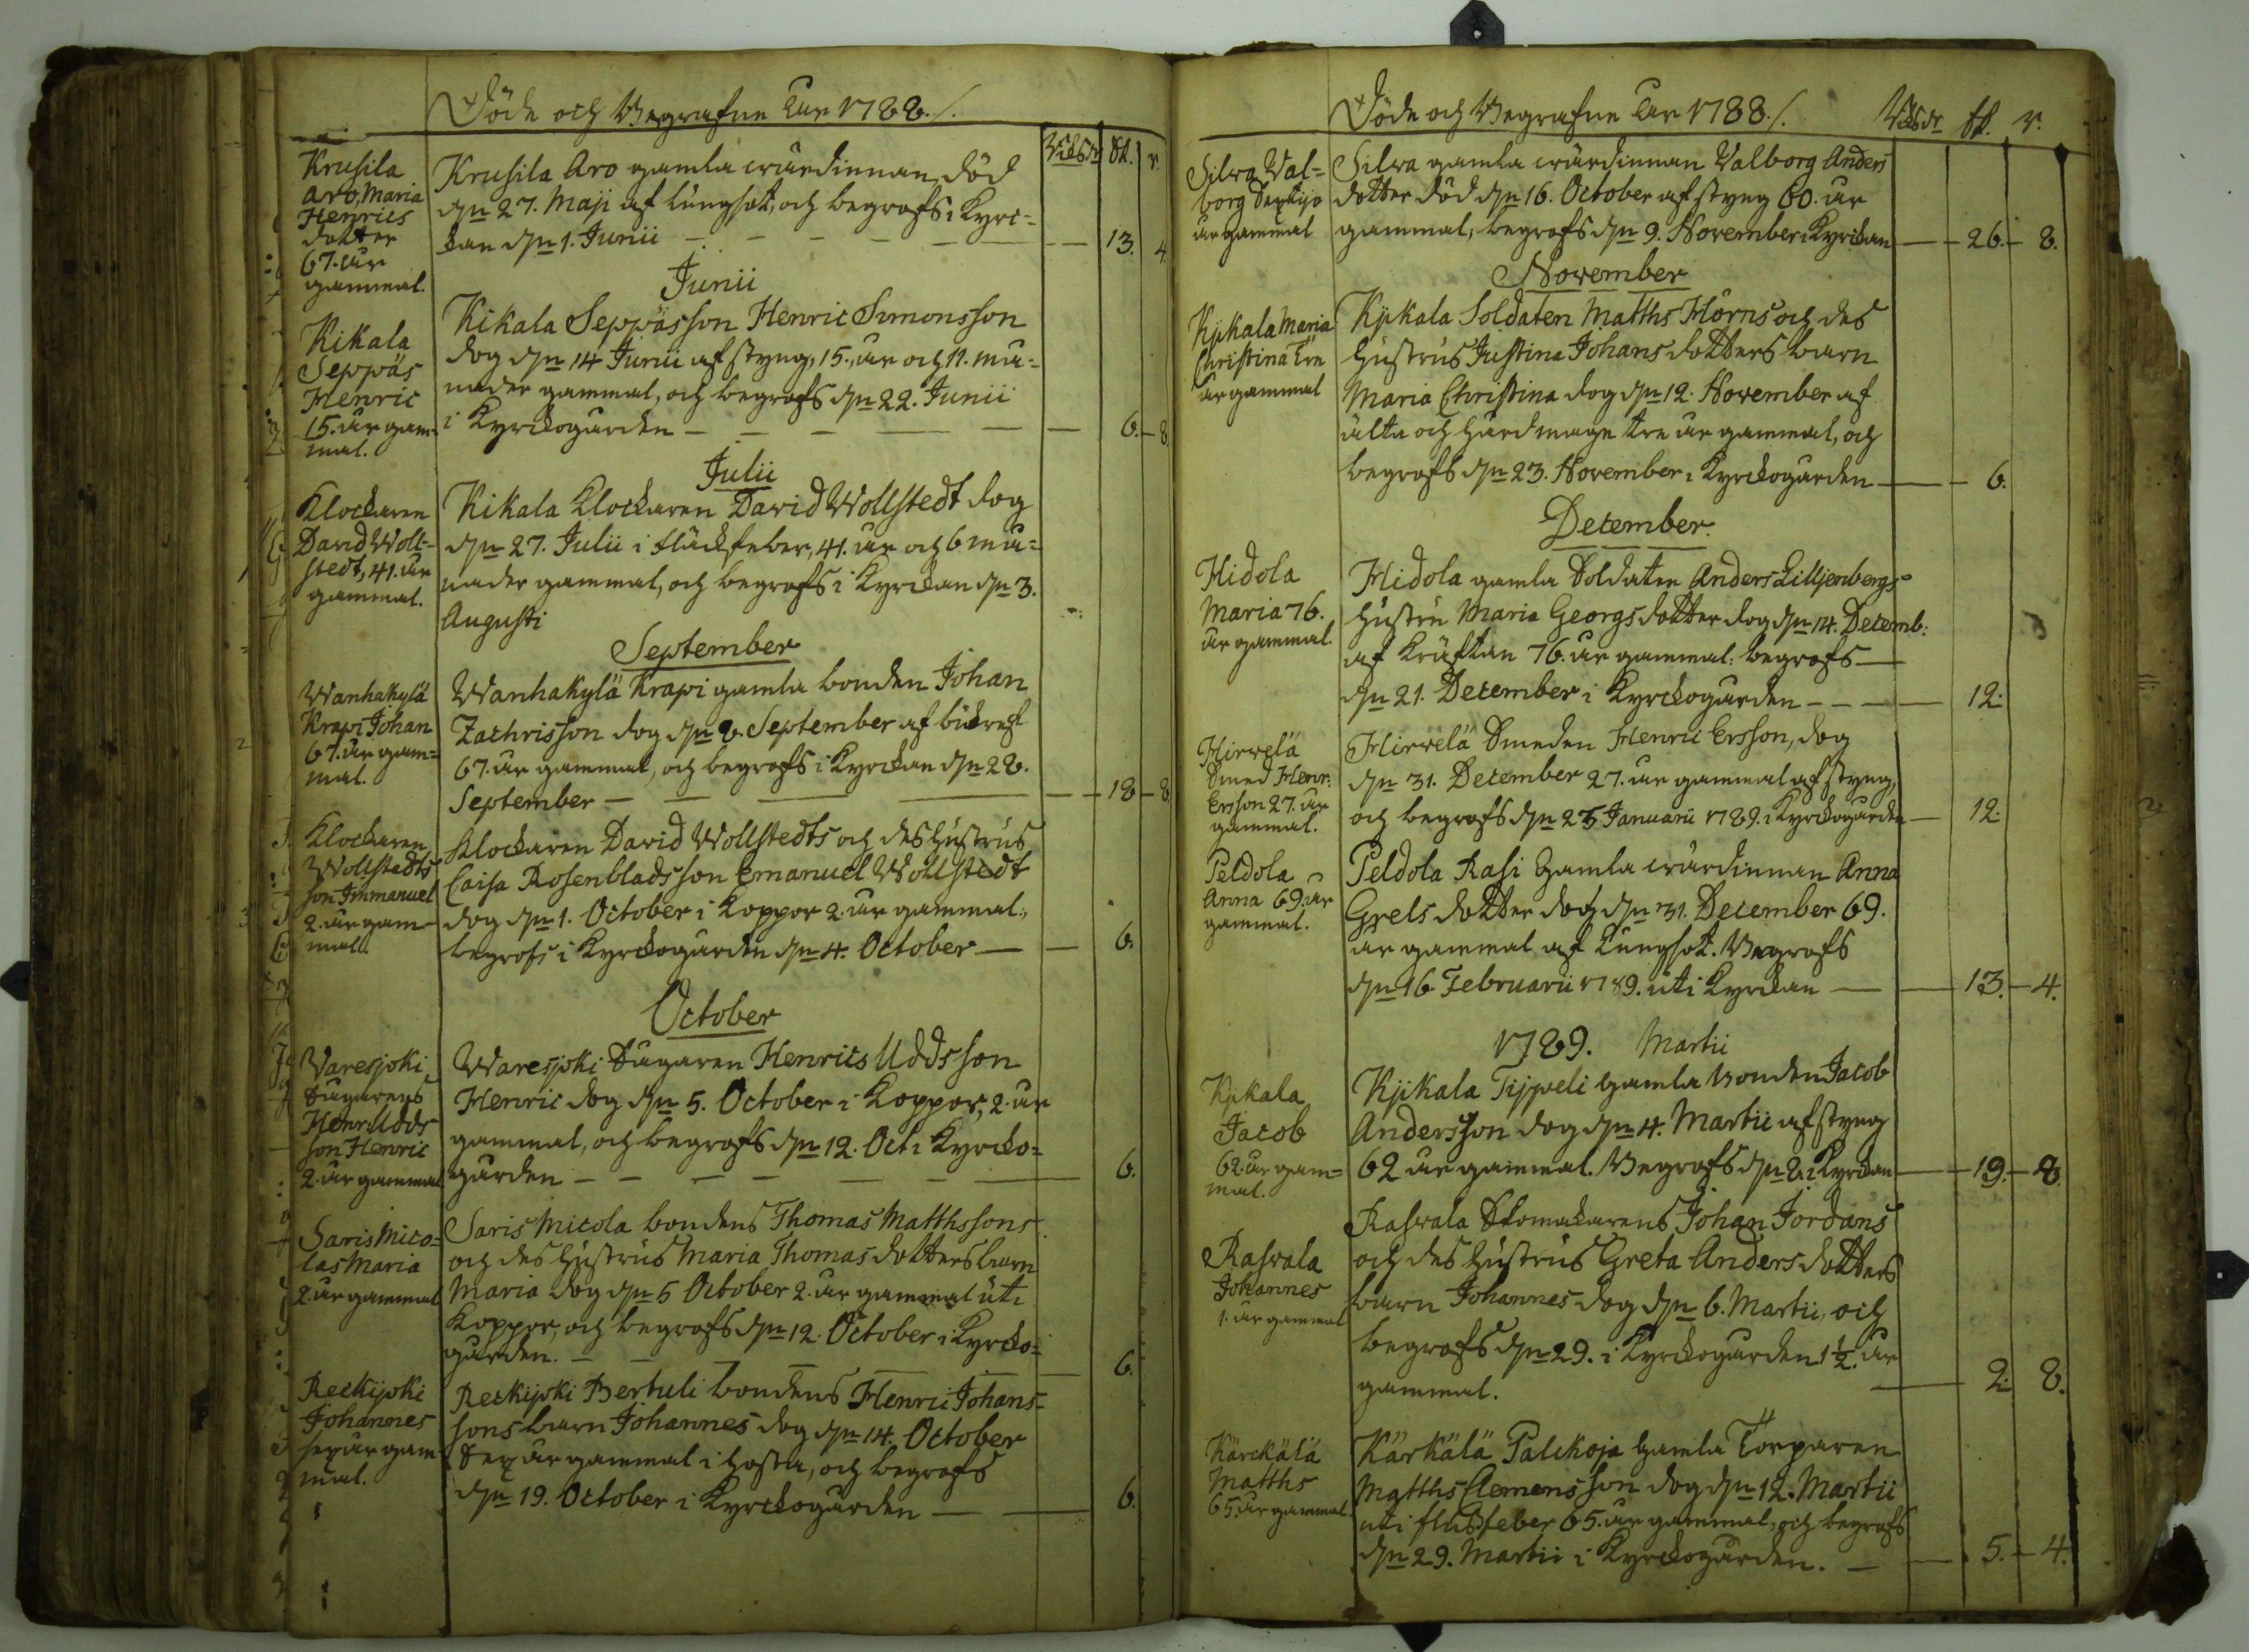 Döde och Begrafne År 1788./.
Riksdr sk. r.
Krusila
Aro, Maria
Henrics
dotter
67. år
gammal.
Krusila Aro gamla wärdinnan, död
dn 27. Maji af lungsot, och begrofs i Kyrc-
kan dn 1. Junii — 13. 4.
Junii
Kikala
Seppäs
Henric
15. år gam-
mal.
Kikala Seppäs son Henric Simonsson
dog dn 14 Junii af styng, 15. år och 11. må-
nader gammal, och begrofs dn 22. Junii
i Kyrckogården — 6. 8
Julii
Klockaren
David Woll-
stedt, 41. år
gammal.
Kikala Klockaren David Wollstedt dog
dn 27. Julii i fläckfeber, 41. år och 6 må-
nader gammal, och begrofs i Kyrckan dn 3.
Augusti
September
Wanhakylä
Krapi Johan
67. år gam-
mal.
Wanhakylä Krapi gamla bonden Johan
Zachrisson dog dn 8. September af
67. år gammal, och begrofs i Kyrckan dn 28.
September — 18 8
Klockaren
Wollstedts
son Immanuel
2. år gam-
mal.
Klockaren David Wollstedts och des hustrus
Caisa Rosenblads son Emanuel Wollstedt
dog dn 1. October i Koppor 2. år gammal,
begrofs i Kyrckogården dn 4. October — 6.
October
Varesjoki
Sågarens
Henr. Udds
son Henric
2. år gammal
Waresjoki Sågaren Henrics Udds son
Henric dog dn 5. October i Koppor, 2. år
gammal, och begrofs dn 12. Oct. i Kyrcko-
gården — 6.
Saris Mico-
las Maria
2. år gammal
Saris Micola bondens Thomas Matthssons
och des hustrus Maria Thomas dotters barn
Maria dog dn 5 October 2. år gammal uti
Koppor, och begrofs dn 12. October i Kyrcko-
gården. — 6.
Reckijoki
Johannes
sex år gam-
mal.
Reckijoki Bertuli bondens Henric Johans-
sons barn Johannes dog dn 14. October
Sex år gammal i hosta, och begrofs
dn 19. October i Kyrckogården — 6.
Döde och Begrafne År 1788./.
Riksdr sk. r.
Silwa Val-
borg Sextijo
år gammal
Silwa gamla wärdinnan Valborg Anders
dotter död dn 16. October af styng 60. år
gammal, begrofs dn 9. November i Kyrckan — 26. 8.
November
Kijkala Maria
Christina tre
år gammal
Kijkala Soldaten Matths Hörns och des
hustrus Justina Johans dotters barn
Maria Christina dog dn 12. November af
älta och hårdmage tre år gammal, och
begrofs dn 23. November i Kyrckogården — 6.
December.
Hidola
Maria 76.
år gammal.
Hidola gamla Soldaten Anders Lilljenbergs
hustru Maria Georgs dotter dog dn 14. Decemb:
af kräftan 76. år gammal: begrofs —
dn 21. December i Kyrckogården — 12.
Hirwelä
Smed Henr:
Ersson 27. år
gammal.
Hirwelä Smeden Henric Ersson, dog
dn 31. December 27. år gammal af styng,
och begrofs dn 25 Januarii 1789. i Kyrckogården — 12.
Peldola
Anna 69. år
gammal.
Peldola Rasi Gamla wärdinnan Anna
Grels dotter dog dn 31. December 69.
år gammal af Lungsot. Begrofs
dn 16. Februarii 1789. uti Kyrckan — 13. 4.
1789. Martii
Kijkala
Jacob
62. år gam-
mal.
Kijkala Tijpeli Gamla Bonden Jacob
Andersson dog dn 4. Martii af styng
62 år gammal. Begrofs dn 8. i Kyrckan — 19. 8
Raswala
Johannes
1. år gammal
Raswala Skomakarens Johan Jordans
och des hustrus Greta Anders dotters
barn Johannes dog dn 6. Martii, och
begrofs dn 29. i Kyrckogården 1 1/2. år
gammal. — 2. 8.
Kärckälä
Matths
65. år gammal
Kärkälä Palckoja Gamla Torparen
Matths Clemens son dog dn 12. Martii
uti flussfeber 65. år gammal, och begrofs
dn 29. Martii i Kyrckogården. — 5. 4.